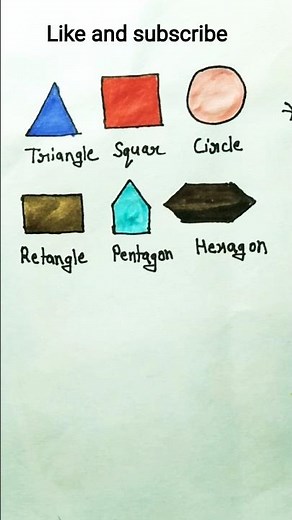 Like and subscribe
Triangle Squar Circle
Retangle Pentagon Hexagon